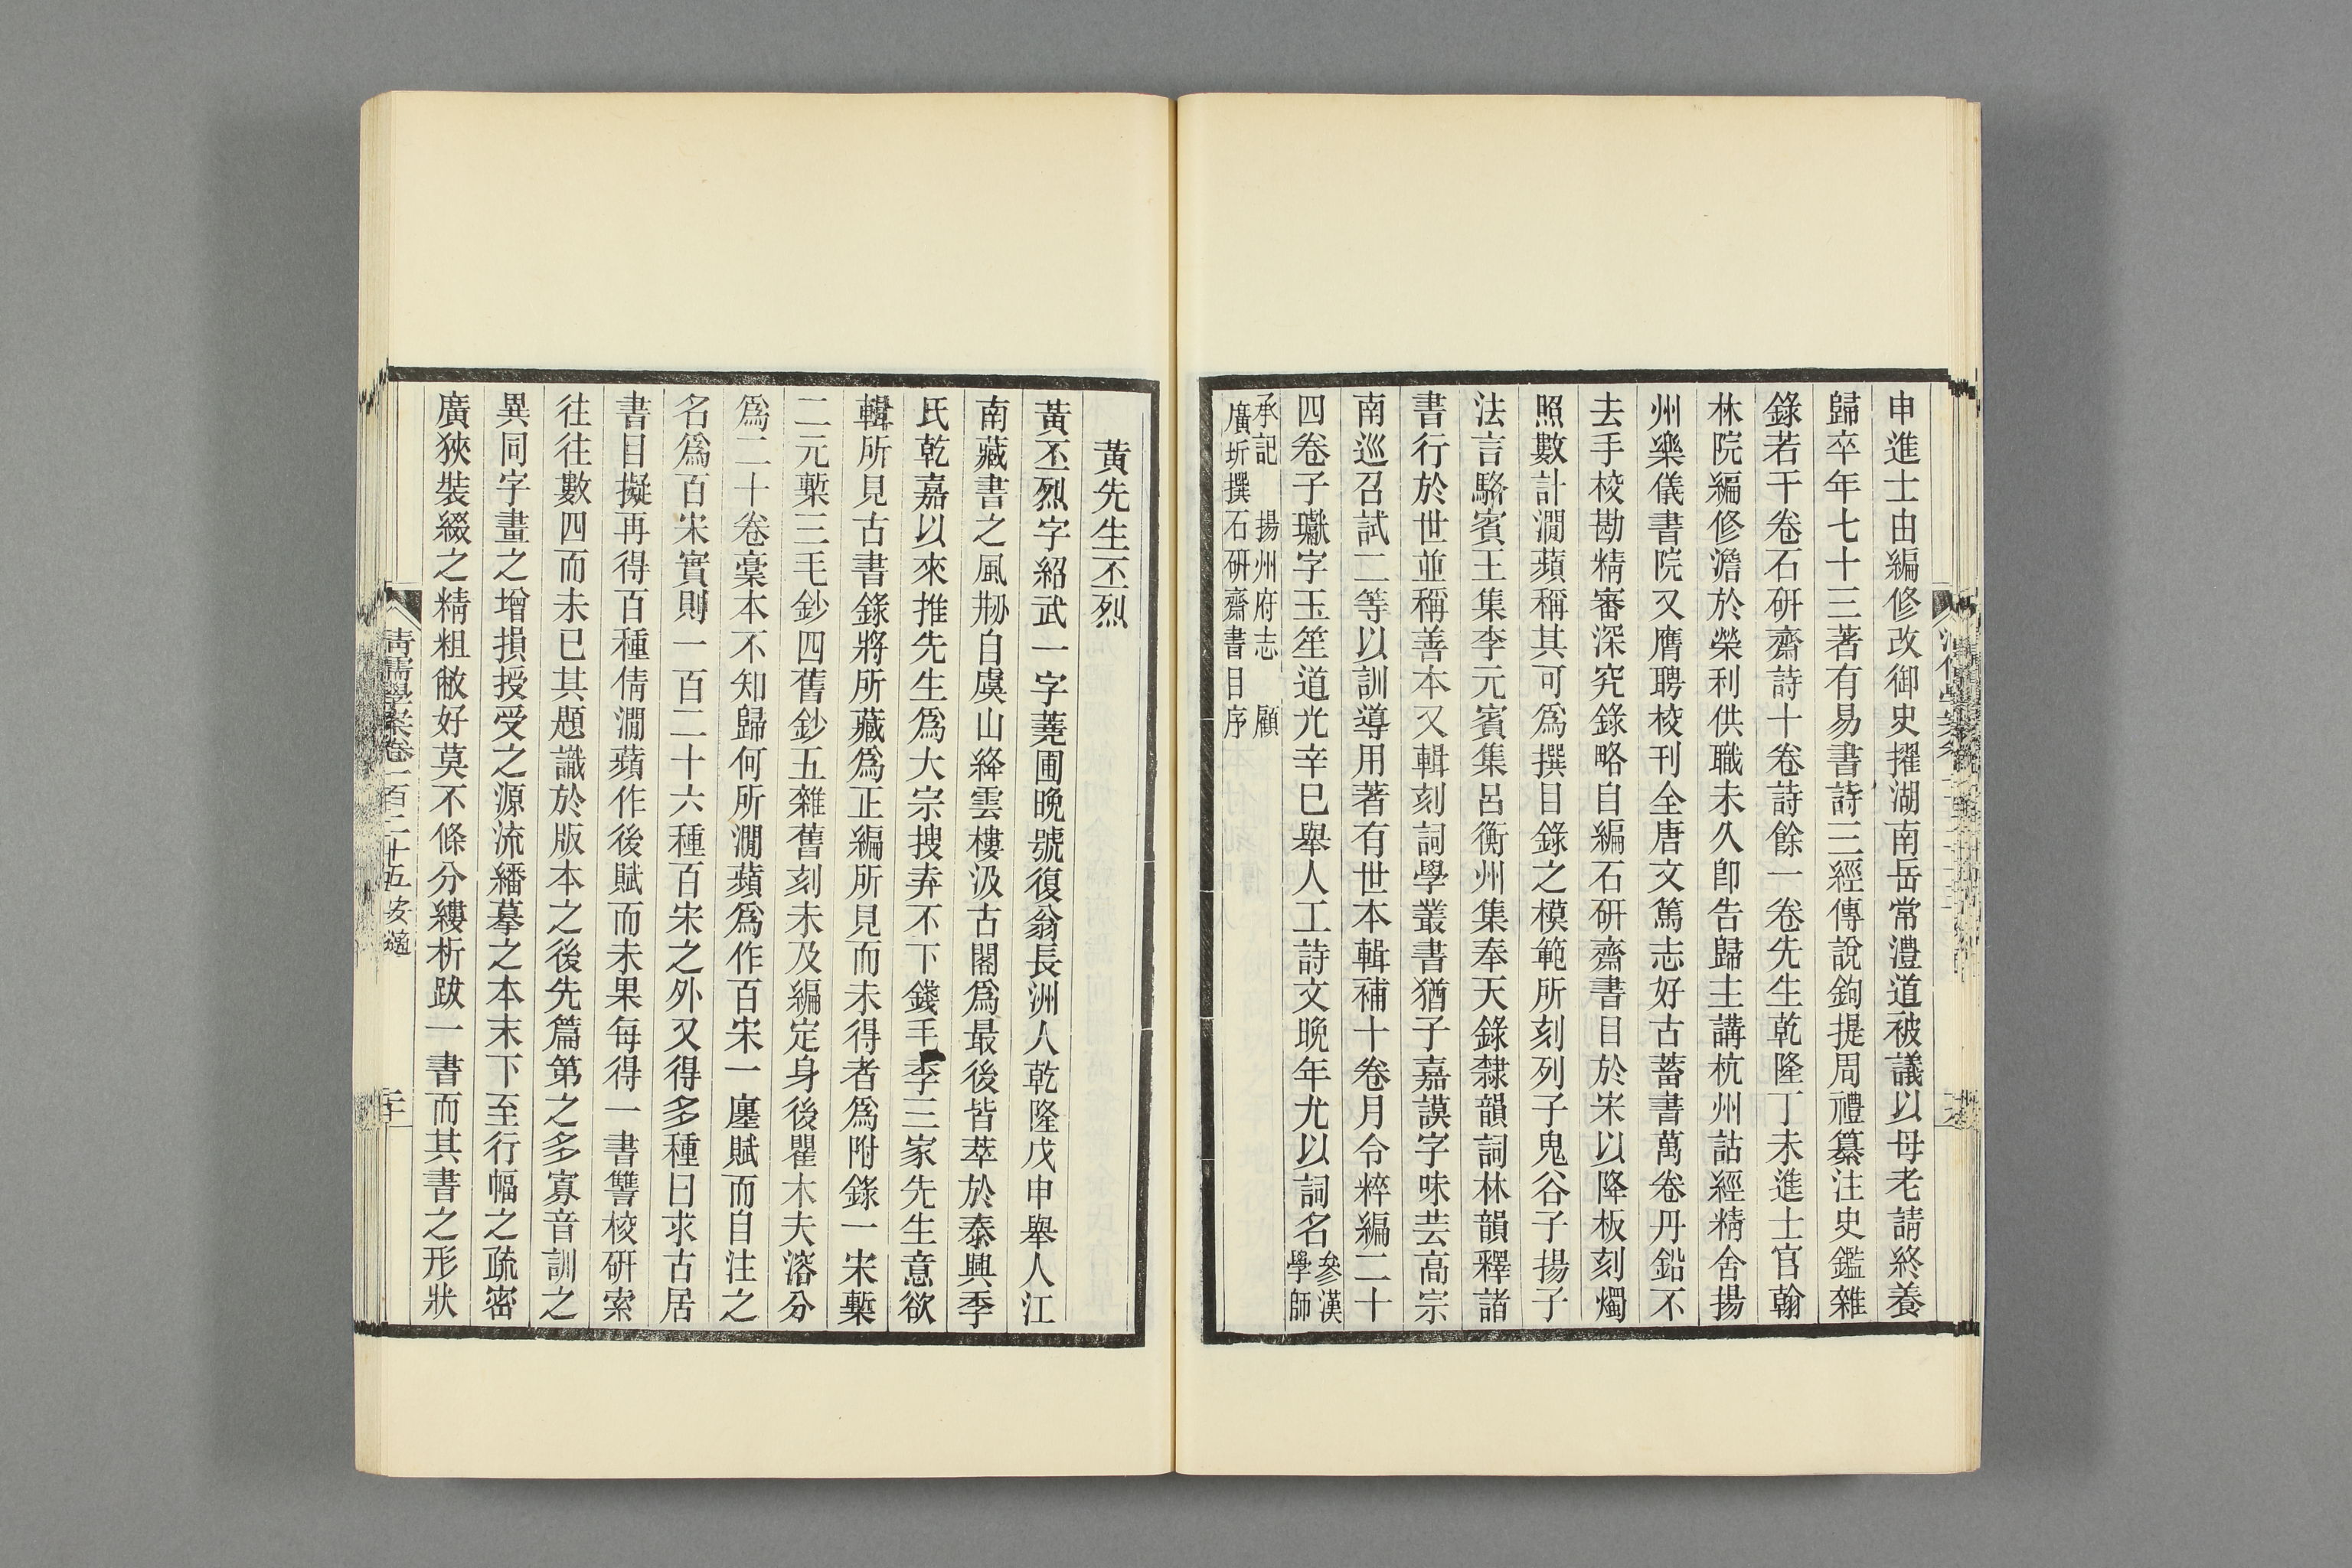 申進士由編修改御史擢湖南岳常澧道被議以母老請終養
歸卒年七十三著有易書詩三經傳說鉤提周禮纂注史鑑雜
錄若干卷石研齋詩十卷詩餘一卷先生乾隆丁未進士官翰
林院編修澹於榮利供職未久卽告歸主講杭州詁經精舍揚
州樂儀書院又膺聘校刊全唐文篤志好古蓄書萬卷丹鉛不
去手校勘精審深究錄略自編石研齋書目於宋以降板刻燭
照數計澗薲稱其可爲撰目錄之模範所刻列子鬼谷子揚子
法言駱賓王集李元賓集呂衡州集奉天錄隸韻詞林韻釋諸
書行於世並稱善本又輯刻詞學叢書猶子嘉謨字味芸高宗
南巡召試二等以訓導用著有世本輯補十卷月令粹編二十
四卷子瓛字玉笙道光辛巳舉人工詩文晚年尤以詞名參漢
學師
承記 揚州府志 顧
廣圻撰石研齋書目序
黃先生丕烈
黃丕烈字紹武一字蕘圃晚號復翁長洲人乾隆戊申舉人江
南藏書之風剏自虞山絳雲樓汲古閣爲最後皆萃於泰興季
氏乾嘉以來推先生爲大宗搜弆不下錢毛季三家先生意欲
輯所見古書錄將所藏爲正編所見而未得者爲附錄一宋槧
二元槧三毛鈔四舊鈔五雜舊刻未及編定身後瞿木夫溶分
爲二十卷稾本不知歸何所澗薲爲作百宋一廛賦而自注之
名爲百宋實則一百二十六種百宋之外又得多種曰求古居
書目擬再得百種倩澗薲作後賦而未果每得一書讐校研索
往往數四而未已其題識於版本之後先篇第之多寡音訓之
異同字畫之增損授受之源流繙摹之本末下至行幅之疏密
廣狹裝綴之精粗敝好莫不條分縷析跋一書而其書之形狀
清儒學案卷一百二十五 安 二十